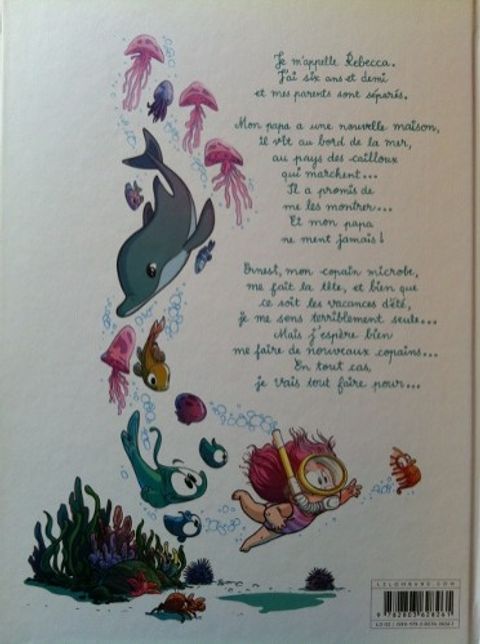 Je m'appelle Rebecca.
J'ai six ans et demi
et mes parents sont séparés.
Mon papa a une nouvelle maison,
il vit au bord de la mer,
au pays des cailloux
qui marchent...
Il a promis de
me les montrer...
Et mon papa
ne ment jamais !
Ernest, mon copain microbe,
me fait la tête, et bien que
ce soit les vacances d'été,
je me sens terriblement seule...
Mais j'espère bien
me faire de nouveaux copains...
En tout cas,
je vais tout faire pour...
LELOMBARD.COM
9 782803 628261